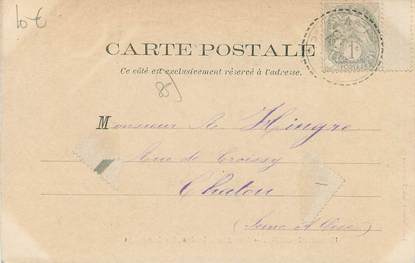 10€
CARTE POSTALE
Ce côté est exclusivement réservé à l'adresse.
85
Monsieur A Hingre
Rue de Croissy
Chatou
(Seine et Oise)